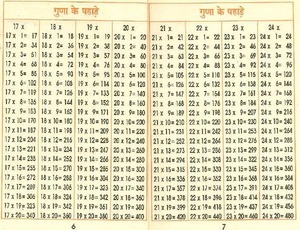 गुणा के पहाड़े
17 x 18 x 19 x 20 x
17 x 1= 17 18 x 1= 18 19 x 1= 19 20 x 1= 20
17 x 2= 34 18 x 2= 36 19 x 2= 38 20 x 2= 40
17 x 3= 51 18 x 3= 54 19 x 3= 57 20 x 3= 60
17 x 4= 68 18 x 4= 72 19 x 4= 76 20 x 4= 80
17 x 5= 85 18 x 5= 90 19 x 5= 95 20 x 5=100
17 x 6=102 18 x 6=108 19 x 6=114 20 x 6=120
17 x 7=119 18 x 7=126 19 x 7=133 20 x 7=140
17 x 8=136 18 x 8=144 19 x 8=152 20 x 8=160
17 x 9=153 18 x 9=162 19 x 9=171 20 x 9=180
17 x 10=170 18 x 10=180 19 x 10=190 20 x 10=200
17 x 11=187 18 x 11=198 19 x 11=209 20 x 11=220
17 x 12=204 18 x 12=216 19 x 12=228 20 x 12=240
17 x 13=221 18 x 13=234 19 x 13=247 20 x 13=260
17 x 14=238 18 x 14=252 19 x 14=266 20 x 14=280
17 x 15=255 18 x 15=270 19 x 15=285 20 x 15=300
17 x 16=272 18 x 16=288 19 x 16=304 20 x 16=320
17 x 17=289 18 x 17=306 19 x 17=323 20 x 17=340
17 x 18=306 18 x 18=324 19 x 18=342 20 x 18=360
17 x 19=323 18 x 19=342 19 x 19=361 20 x 19=380
17 x 20=340 18 x 20=360 19 x 20=380 20 x 20=400
6
गुणा के पहाड़े
21 x 22 x 23 x 24 x
21 x 1= 21 22 x 1= 22 23 x 1= 23 24 x 1= 24
21 x 2= 42 22 x 2= 44 23 x 2= 46 24 x 2= 48
21 x 3= 63 22 x 3= 66 23 x 3= 69 24 x 3= 72
21 x 4= 84 22 x 4= 88 23 x 4= 92 24 x 4= 96
21 x 5=105 22 x 5=110 23 x 5=115 24 x 5=120
21 x 6=126 22 x 6=132 23 x 6=138 24 x 6=144
21 x 7=147 22 x 7=154 23 x 7=161 24 x 7=168
21 x 8=168 22 x 8=176 23 x 8=184 24 x 8=192
21 x 9=189 22 x 9=198 23 x 9=207 24 x 9=216
21 x 10=210 22 x 10=220 23 x 10=230 24 x 10=240
21 x 11=231 22 x 11=242 23 x 11=253 24 x 11=264
21 x 12=252 22 x 12=264 23 x 12=276 24 x 12=288
21 x 13=273 22 x 13=286 23 x 13=299 24 x 13=312
21 x 14=294 22 x 14=308 23 x 14=322 24 x 14=336
21 x 15=315 22 x 15=330 23 x 15=345 24 x 15=360
21 x 16=336 22 x 16=352 23 x 16=368 24 x 16=384
21 x 17=357 22 x 17=374 23 x 17=391 24 x 17=408
21 x 18=378 22 x 18=396 23 x 18=414 24 x 18=432
21 x 19=399 22 x 19=418 23 x 19=437 24 x 19=456
21 x 20=420 22 x 20=440 23 x 20=460 24 x 20=480
7